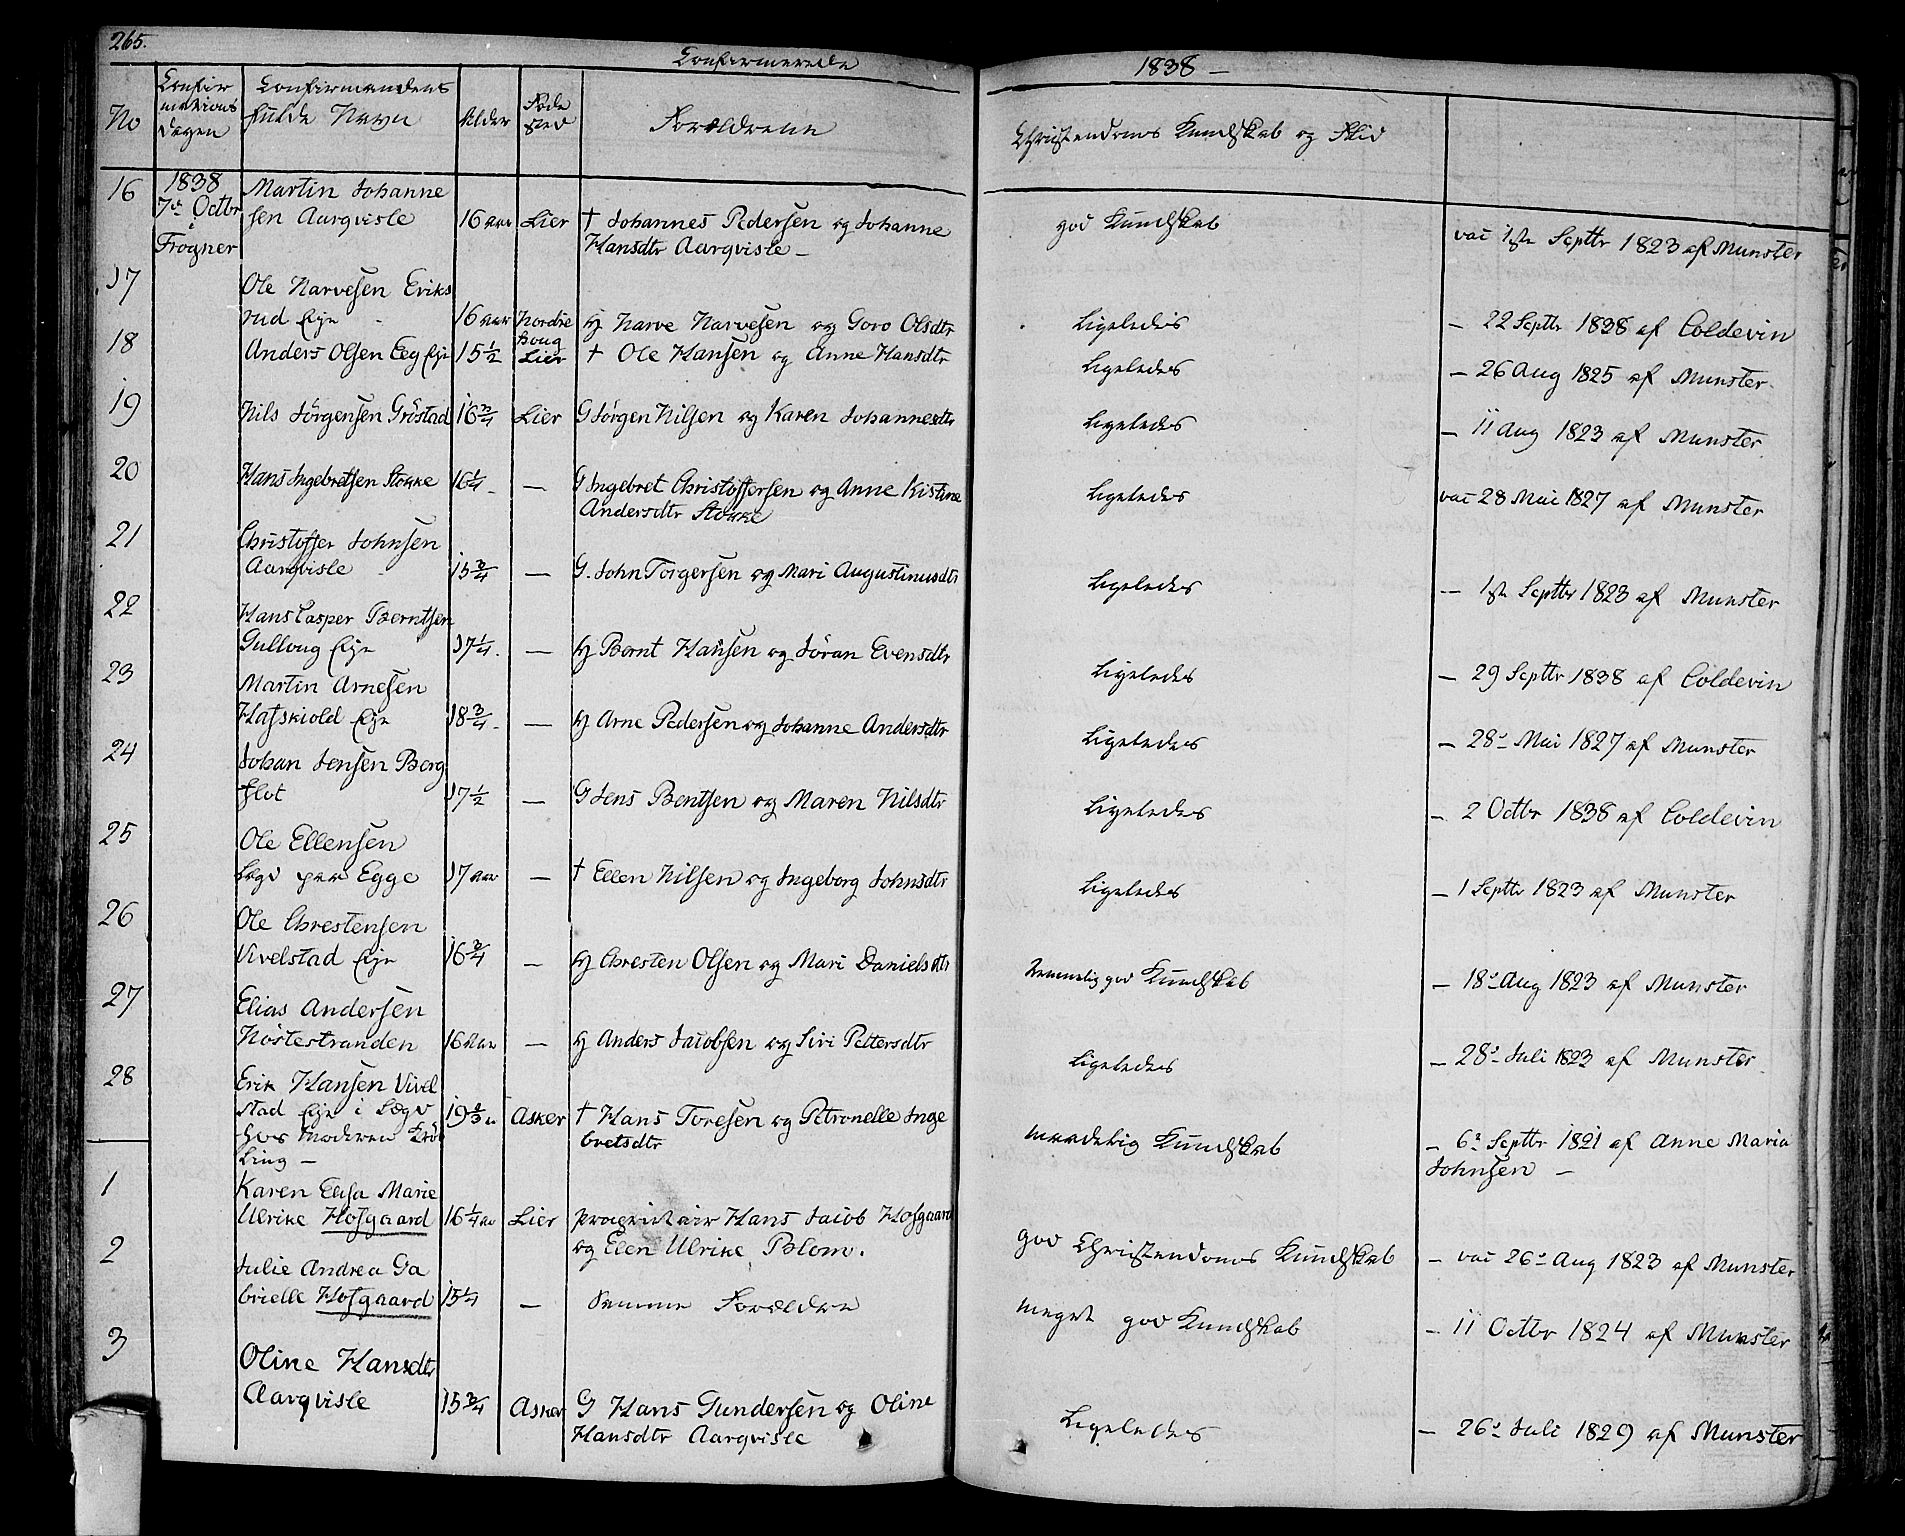 265.
Confirmerede
1838 –
No
Confir
mations
Dagen
Confirmandens
fulde Navn
Alder
Føde
sted
Forældrene
Christendoms Kundskab og Flid
16
1838
7de Octbr
Frogner
Martin Johanne
sen Aarqvisle
16 aar
Lier
† Johannes Pedersen og Johanne
Hansdtr Aarqvisle –
god Kundskab
vac 1ste Septbr 1823 af Munster
17
Ole Narvesen Eriks
rud Eje
16 aar
Nordre
houg
G Narve Narvesen og Goro Olsdtr
Ligeledes
– 22 Septbr 1838 af Coldevin
18
Anders Olsen Eeg Eje
15 1/2
Lier
† Ole Hansen og Anne Hansdtr
Ligeledes
– 26 Aug 1825 af Munster
19
Nils Jörgensen Gröstad
16 3/4
Lier
G Jörgen Nilsen og Karen Johannesdtr
Ligeledes
– 11 Aug 1823 af Munster
20
Hans Ingebretsen Stokke
16 1/4
—
G Ingebret Christoffersen og Anne Kistine
Andersdtr Stokke
Ligeledes
vac 28 Mai 1827 af Munster
21
Christoffer Johnsen
Aarqvisle
15 3/4
—
G. John Torgersen og Mari Augustinusdtr
Ligeledes
– 1ste Septbr 1823 af Munster
22
Hans Casper Berntsen
Gulloug Eje
17 1/4
—
G Bernt Hansen og Jöran Evensdtr
Ligeledes
– 29 Septbr 1838 af Coldevin
23
Martin Arnesen
Hafskiold Eje
18 3/4
—
G Arne Pedersen og Johanne Andersdtr
Ligeledes
– 28de Mai 1827 af Munster
24
Johan Jensen Berg
flot
17 1/2
—
G Jens Bentsen og Maren Nilsdtr
Ligeledes
– 2 Octbr 1838 af Coldevin
25
Ole Ellensen
Lægd paa Egge
17 aar
—
† Ellen Nilsen og Ingeborg Johnsdtr
Ligeledes
– 1 Septbr 1823 af Munster
26
Ole Chrestensen
Vivelstad Eje
16 3/4
—
G Chresten Olsen og Mari Danielsdtr
Temmelig god Kundskab
– 18de Aug 1823 af Munster
27
Elias Andersen
Nöstestranden
16 Aar
—
G Anders Jacobsen og Siri Pettersdtr
Ligeledes
– 28de Juli 1823 af Munster
28
Erik Hansen Vivel
stad Eje i Lægd
hos Moderen
ling –
Asker
† Hans Toresen og Petronelle Inge
bretsdtr
maadelig Kundskab
– 6te Septbr 1821 af Anne Maria
Johnsen –
1
Karen Elisa Marie
Ulrike Hofgaard
16 1/4 aar
Lier
proprietair Hans Jacob Hofgaard
og Elen Ulrike Blom.
god Christendoms Kundskab
– vac 26de Aug 1823 af Munster
2
Julie Andrea Ga
brielle Hofgaard
15 1/4
—
Samme Forældre
meget god Kundskab
– 11 Octbr 1824 af Munster
3
Oline Hansdtr
Aarqvisle
15 3/4
Asker
G Hans Gundersen og Oline
Hansdtr Aarqvisle
Ligeledes
– 26de Juli 1829 af Munster